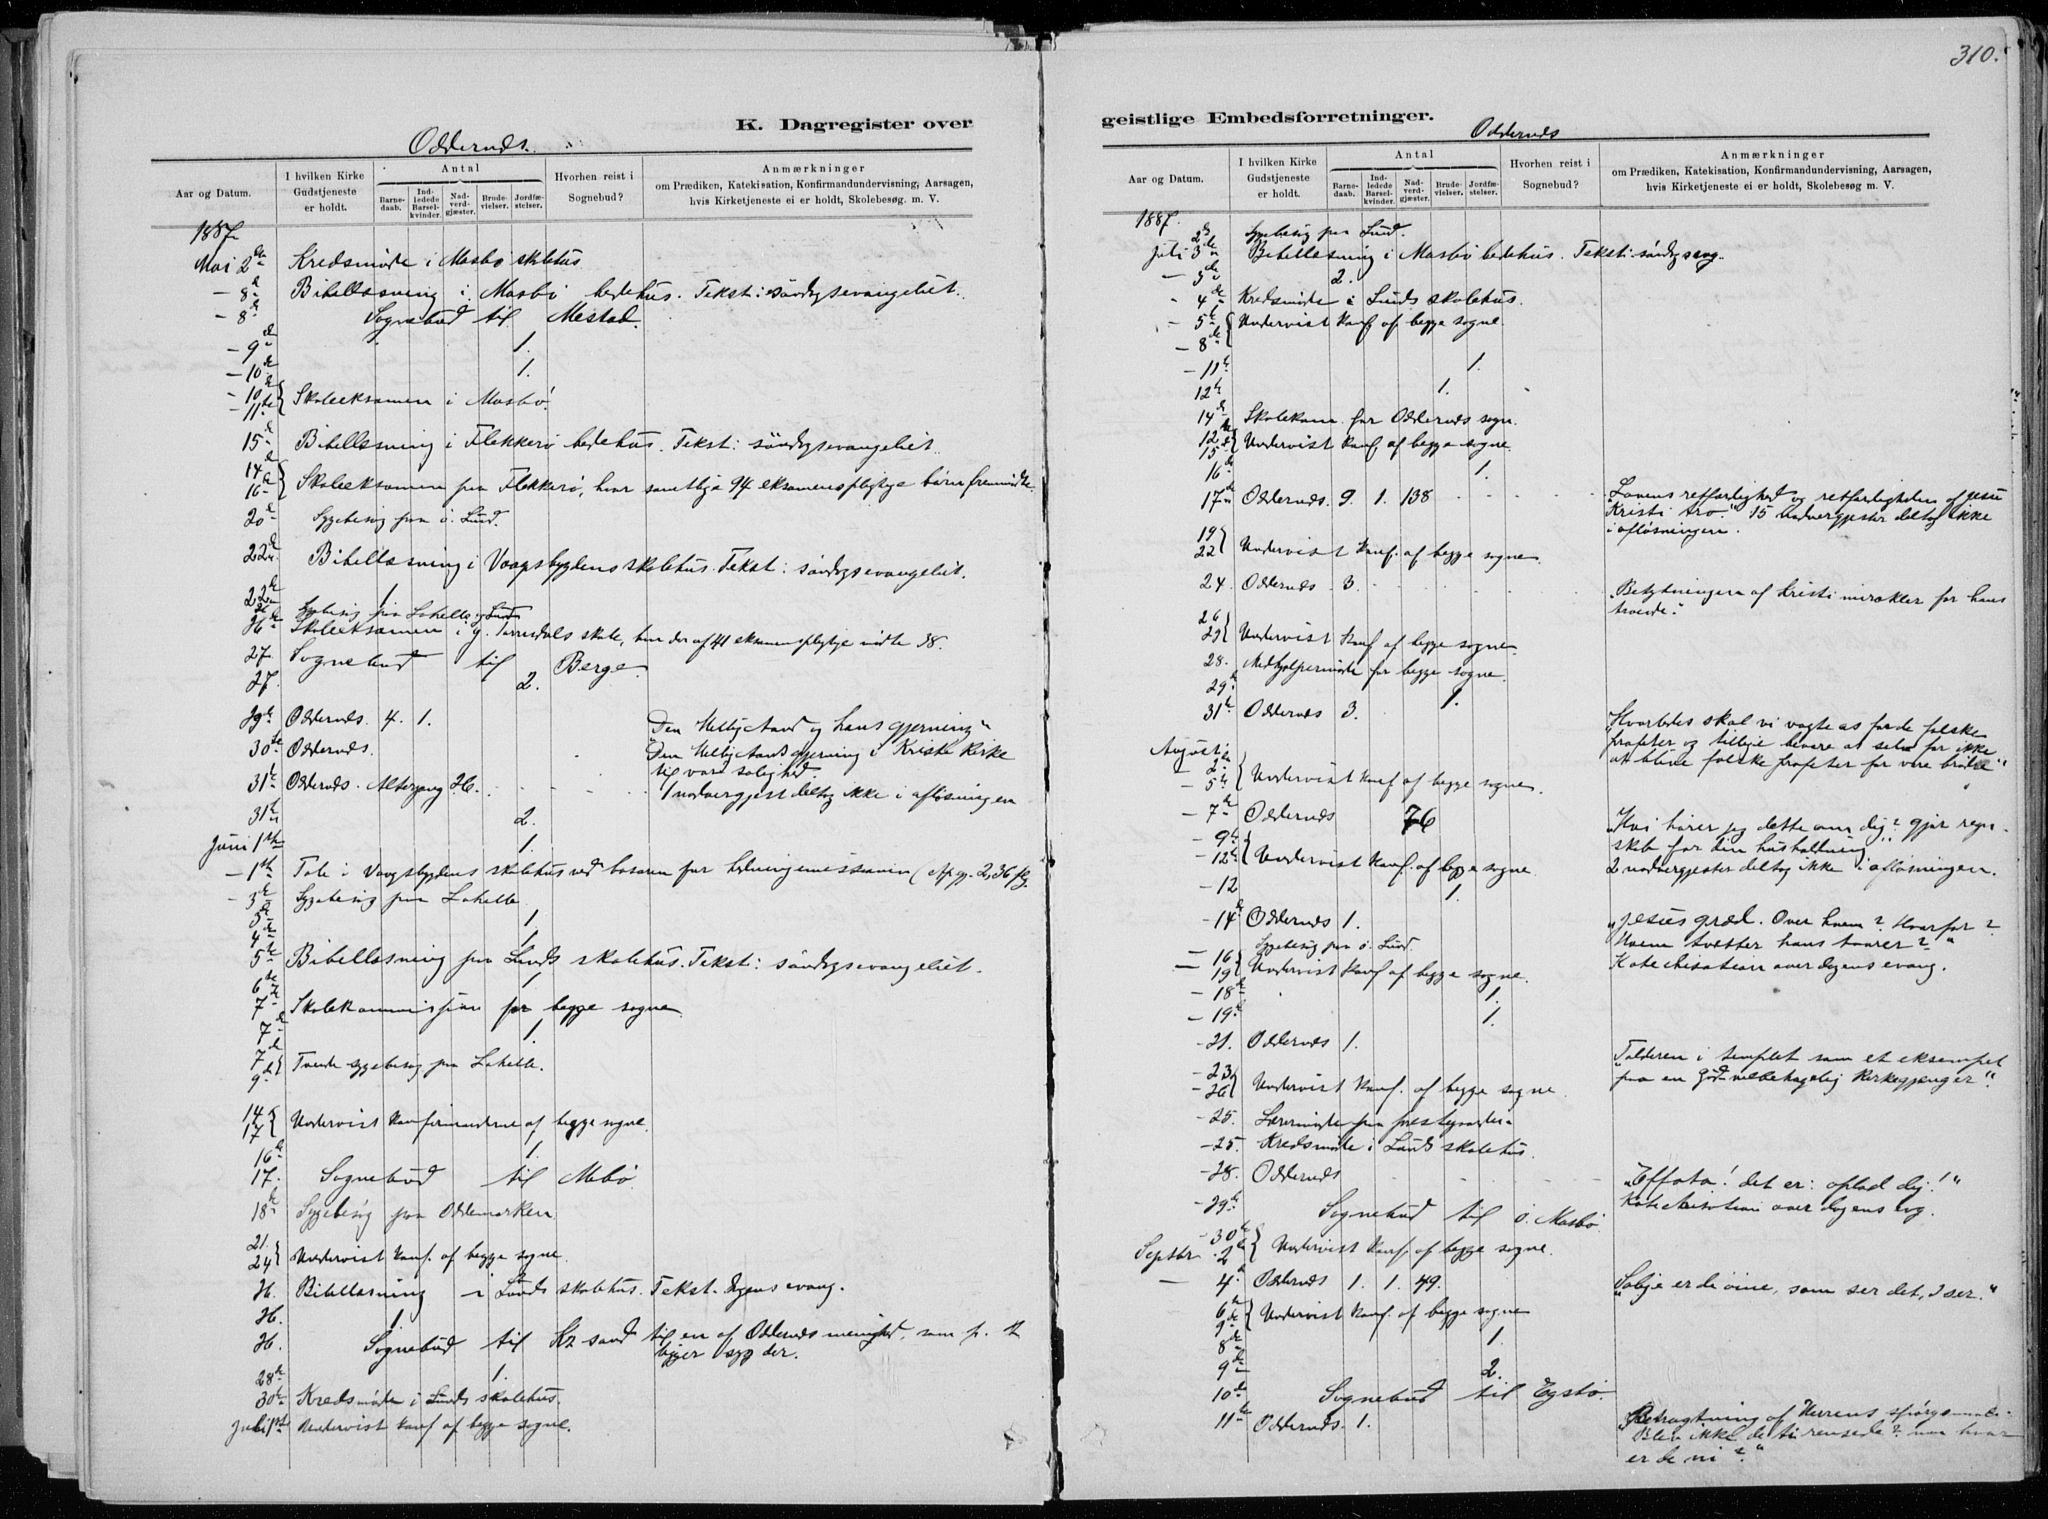 310.
K. Dagregister over
Oddernes.
Aar og Datum.
I hvilken Kirke Gudstjeneste er holdt.
Antal
Barnedaab.
Indledede Barselkvinder.
Nadverdgjæster.
Brudevielser.
Jordfæstelser.
Hvorhen reist i Sognebud?
Anmærkninger
om Prædiken, Katekisation, Konfirmandundervisning, Aarsagen,
hvis Kirketjeneste ei er holdt, Skolebesøg. m. V.
1887
Mai 2den Kredsmøde i Mosbø skolehus
- 8de Bibellæsning i Mosbø bedehus. Tekst: søndagsevangeliet.
- 8de Sognebud til Mestad.
- 9de 1.
- 10de 1.
- 10de
- 11te Skoleeksamen i Mosbø.
15de Bibellæsning i Flekkerø bedehus. Tekst: søndagsevangeliet.
14de
16de Skoleeksamen paa Flekkerø, hvor samtlige 94 eksamenspligtige børn fremmødte
20de Sygebesøg paa ø. Lund.
22de Bibellæsning i Vaagsbygdens skolehus. Tekst: søndagsevangeliet.
22de 1
26 Sygebesøg paa Lahelle og Lund
26de Skoleeksamen i g. Torresdals skole, hvor der af 41 eksamenspligtige mødte 38.
27 Sognebud til Berge.
27. 2.
29de Oddernes. 4. 1. "Den Helligaand og hans gjerning"
30te Oddernes. "Den Helligaands gjerning i Kristi Kirke
til vor salighed.
31te Oddernes. Altergang 26. 1 nadvergjest deltog ikke i afløsningen
31te 2.
Juni 1ste 1.
- 1ste Tale i Vaagsbygdens skolehus ved basaren for hedningemissionen (Ap.gj. 2,36 flg.
- 3de Sygebesøg paa Lahelle.
3de 1
4de 1
5te Bibellæsning paa Lunds skolehus. Tekst: søndagsevangeliet.
6te 1
7de Skolekommission for begge sogne
7de 1.
7de
9de Tvende sygebesøg paa Lahelle.
14
17 Undervist konfirmanderne af begge sogne.
16de 1.
17. Sognebud til Mebø
18de Sygebesøg paa Oddemarken
21.
24 Undervist konf. af begge sogne.
26. Bibellæsning i Lunds skolehus. Tekst. Dagens evang.
26. 1.
26. Sognebud til Kr.sand til en af Oddernes menighed, som p. t.
ligger syg der.
28de 1.
30te Kredsmøde i Lunds skolehus.
Juli 1ste Undervist konf. af begge sogne.
geistlige Embedsforretninger.
Oddernes
Aar og Datum.
I hvilken Kirke Gudstjeneste er holdt.
Antal
Barnedaab.
Indledede Barselkvinder.
Nadverdgjæster.
Brudevielser.
Jordfæstelser.
Hvorhen reist i Sognebud?
Anmærkninger
om Prædiken, Katekisation, Konfirmandundervisning, Aarsagen,
hvis Kirketjeneste ei er holdt, Skolebesøg m. V.
1887.
2de Sygebesøg paa Lund.
Juli 3de Bibellæsning i Mosbø bedehus. Tekst: søndagsevg.
- 3de 2.
- 4de Kredsmøde i Lunds skolehus.
- 5te
- 8de Undervist konf. af begge sogne.
- 11te 1.
12te 1.
14de Skolekom. for Oddernes sogn.
12te
15de Undervist konf. af begge sogne.
16de 1.
17de Oddernes. 9. 1. 138 "Lovens retfærdighed og retfærdigheden af Jesu
Kristi tro." 15 nadvergjester deltog ikke
i afløsningen.
19
22 Undervist konf. af begge sogne
24. Oddernes 3. "Betydningen af Kristi mirakler for hans
troende."
26
29 Undervist konf. af begge sogne.
28. Medhjælpermøde for begge sogne.
29de 1.
31te Oddernes 3. "Hvorledes skal vi vogte os for de falske
profeter og tillige bevare os selv for ikke
at blive falske profeter for vore brødre"
August
- 2den
- 5te Undervist konf. af begge sogne.
- 7de Oddernes 76 "Hvi hører jeg dette om dig? gjør regn-
skab for din husholdning"
2 nadvergjester deltog ikke i afløsningen.
- 9de
- 12te Undervist konf. af begge sogne
- 12 1.
- 14de Oddernes 1. "Jesus græd. Over hvem? Hvorfor?
Hvem tvætter hans taarer?"
Katechisation over dagens evang.
Sygebesøg paa ø. Lund.
- 16
- 19 Undervist konf. af begge sogne.
- 18de 1.
- 19de 1.
- 21. Oddernes 1. "Tolderen i templet som et eksempel
paa en Gud velbehagelig kirkegjænger".
- 23
- 26 Undervist konf. af begge sogne.
- 25. Lærermøde paa prestegaarden
- 25. Kredsmøde i Lunds skolehus.
- 28. Oddernes "Effata! det er: oplad dig!"
Katechisation over dagens evg.
- 29de Sognebud til ø. Mosbø.
- 30te
Septbr. 2den Undervist konf. af begge sogne.
- 4de Oddernes 1. 1. 49. "Salige er de øine, som ser det, I ser."
6te
9de Undervist konf. af begge sogne
8de 1.
9de 2.
10de Sognebud til Egstø.
11te Oddernes. 1. "Betragtning af Herrens spørgsmaal:
"Blev ikke de ti rensede? men hvor
er de ni?"